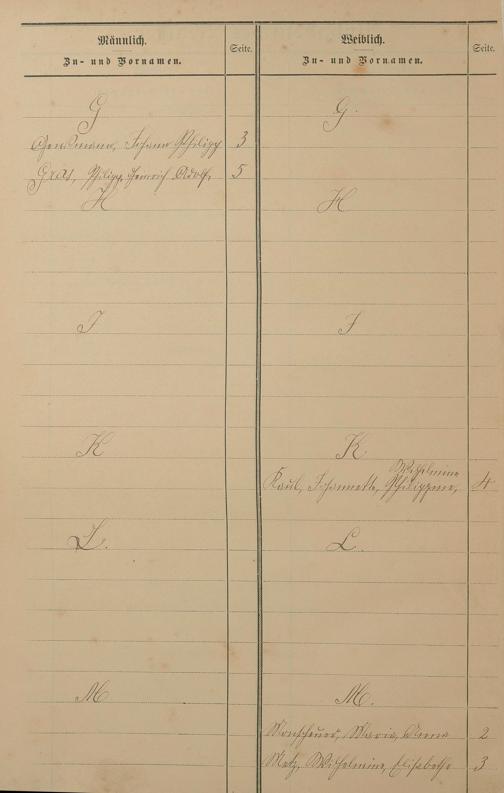 Männlich.
Zu- und Vornamen.
Seite.
G
Johann Philipp 3
Gras, Philipp Heinrich Adolf, 5
H
I
K
L.
M
Weiblich.
Zu- und Vornamen.
Seite.
G.
H
I
K
Wilhelmine
Kaul, Johannette, Philippine, 4
L.
M.
Monscheuer, Maria, Anna 2
Metz, Wilhelmine, Elisabetha 3